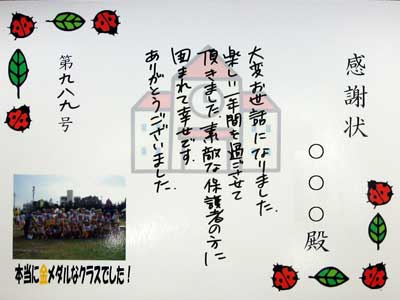 感謝状
〇〇〇殿
大変お世話になりました。
楽しい一年間を過ごさせて
頂きました。素敵な保護者の方に
囲まれて幸せです。
ありがとうございました。
第九八九号
本当に金メダルなクラスでした!